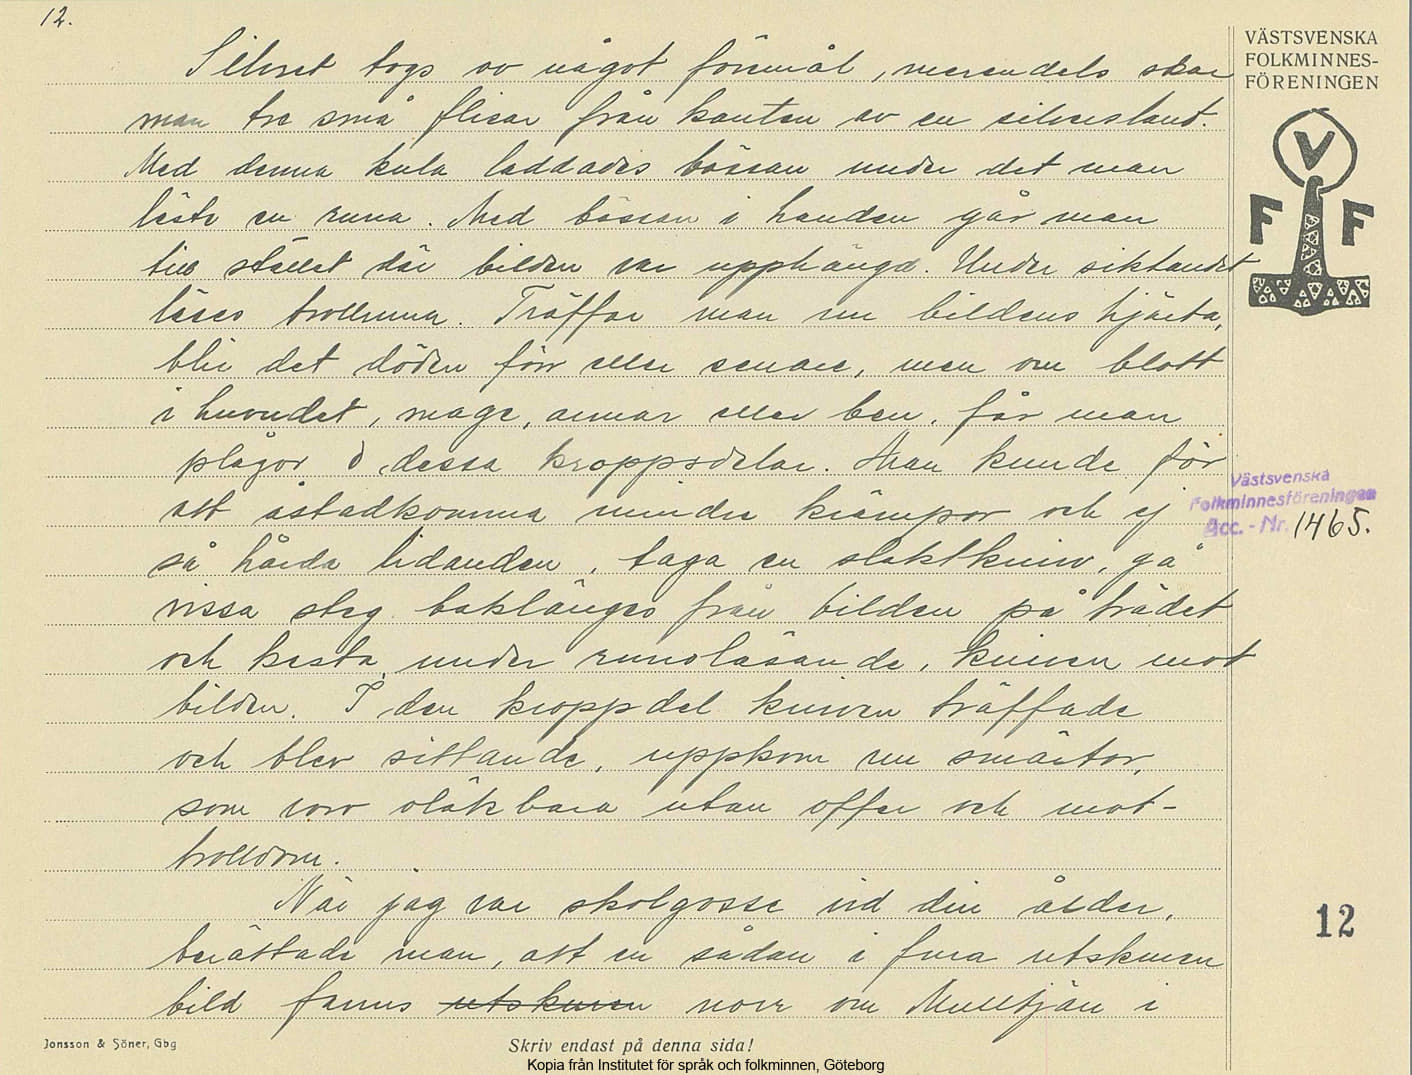 12.
VÄSTSVENSKA
FOLKMINNES-
FÖRENINGEN
V
F F
Silvret togs av något föremål, merendels skar
man tre små flisar från kanten av en silverslant.
Med denna kula laddades bössan under det man
läste en runa. Med bössan i handen går man
till stället där bilden var upphängd. Under siktandet
läses trollruna. Träffar man nu bildens hjärta,
blir det döden förr eller senare, men om blott
i huvudet, mage, armar eller ben, får man
plågor i dessa kroppsdelar. Man kunde för
att åstadkomma mindre krämpor och ej
så hårda lidanden, taga en slaktkniv, gå
vissa steg baklänges från bilden på trädet
och kasta, under runoläsande, kniven mot
bilden. I den kroppdel kniven träffade
och blev sittande, uppkom nu smärtor,
som voro oläkbara utan offer och mot-
trolldom.
När jag var skolgosse vid din ålder,
berättade man, att en sådan i fura utskuren
bild fanns utskuren norr om Mulltjärn i
Västsvenska
Folkminnesföreningen
Acc. - Nr. 1465.
12
Jonsson & Söner, Gbg
Skriv endast på denna sida!
Kopia från Institutet för språk och folkminnen, Göteborg